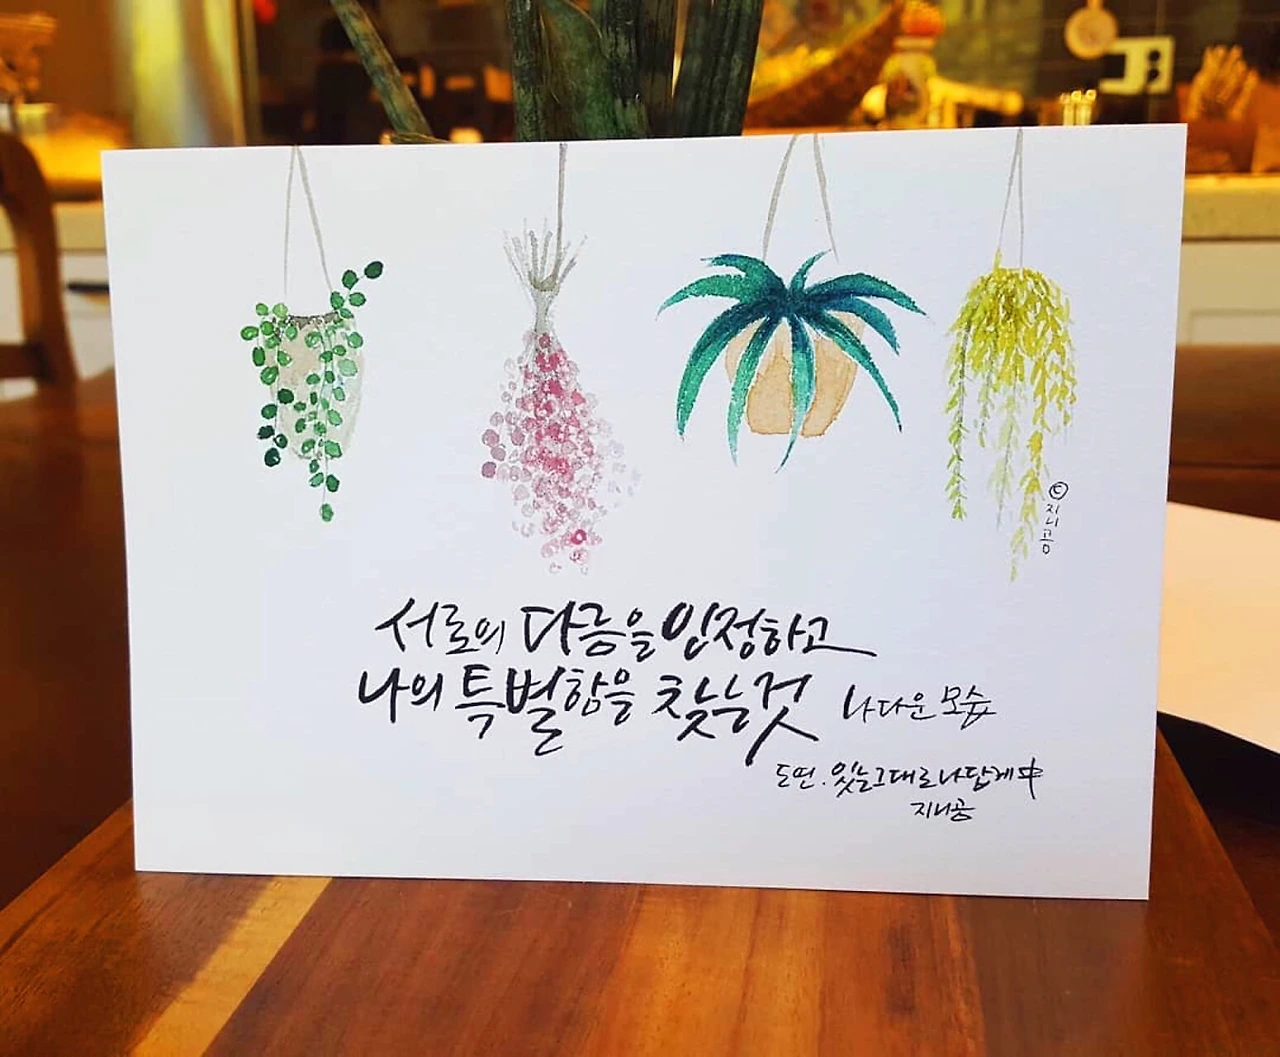 ⓒ지니공
서로의 다름을 인정하고
나의 특별함을 찾는것 나다운 모습
도연. 있는그대로나답게中
지니공